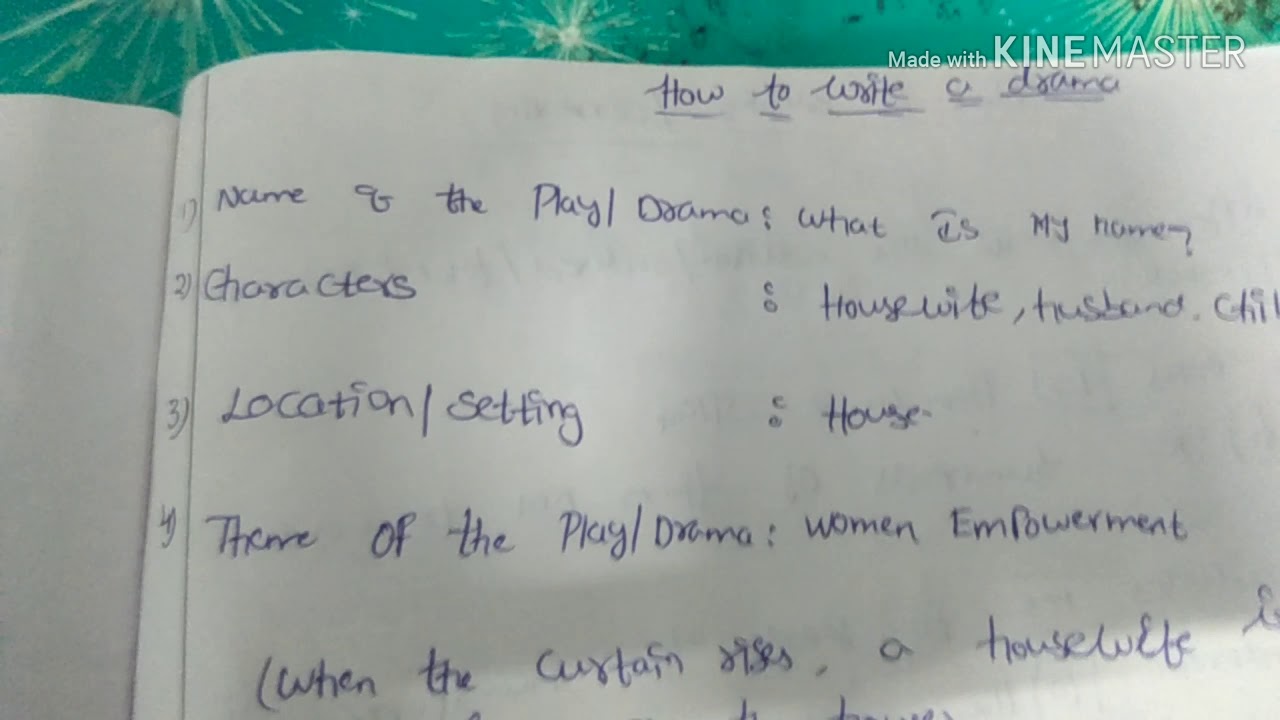 Made with KINEMASTER
How to write a drama
1) Name of the Play/Drama: What Is My name?
2) Characters : Housewife, husband. Chil
3) Location/Setting : House.
4) Theme of the Play/Drama: Women Empowerment
(When the curtain rises, a housewife